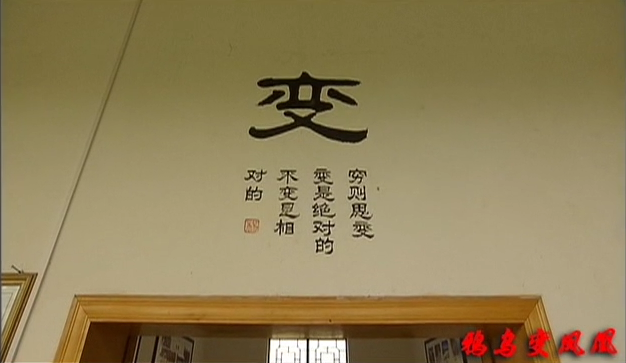 变
穷则思变
变是绝对的
不变是相
对的
鸦乌变凤凰